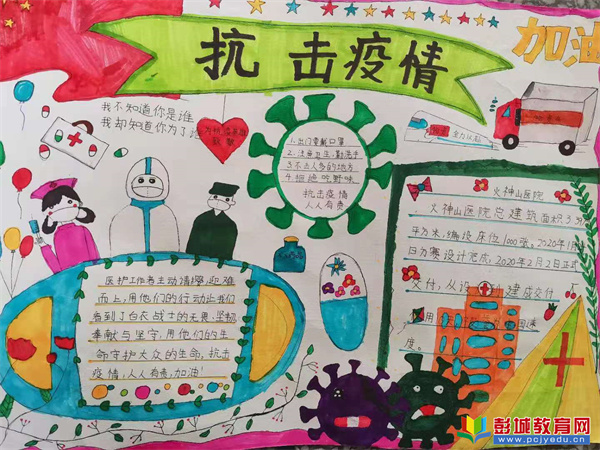 抗击疫情
加油
我不知道你是谁
我却知道你为了谁
致敬
1.出门要戴口罩
2.注意卫生,勤洗手
3.不去人多的地方
4.拒绝吃野味
抗击疫情
人人有责
全力以赴
火神山医院
火神山医院总建筑面积3万
平方米,编设床位1000张。2020年1月
日方案设计完成,2020年2月2日正式
交付,从设
建成交付
用
国速
度。
医护工作者主动请缨,迎难
而上,用他们的行动让我们
看到了白衣战士的无畏,坚韧
奉献与坚守,用他们的生
命守护大众的生命,抗击
疫情,人人有责,加油!
彭城教育网
www.pcjyedu.cn